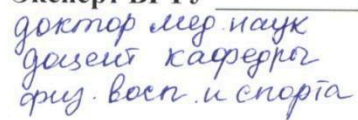 доктор мед. наук
доцент кафедры
физ. восп. и спорта